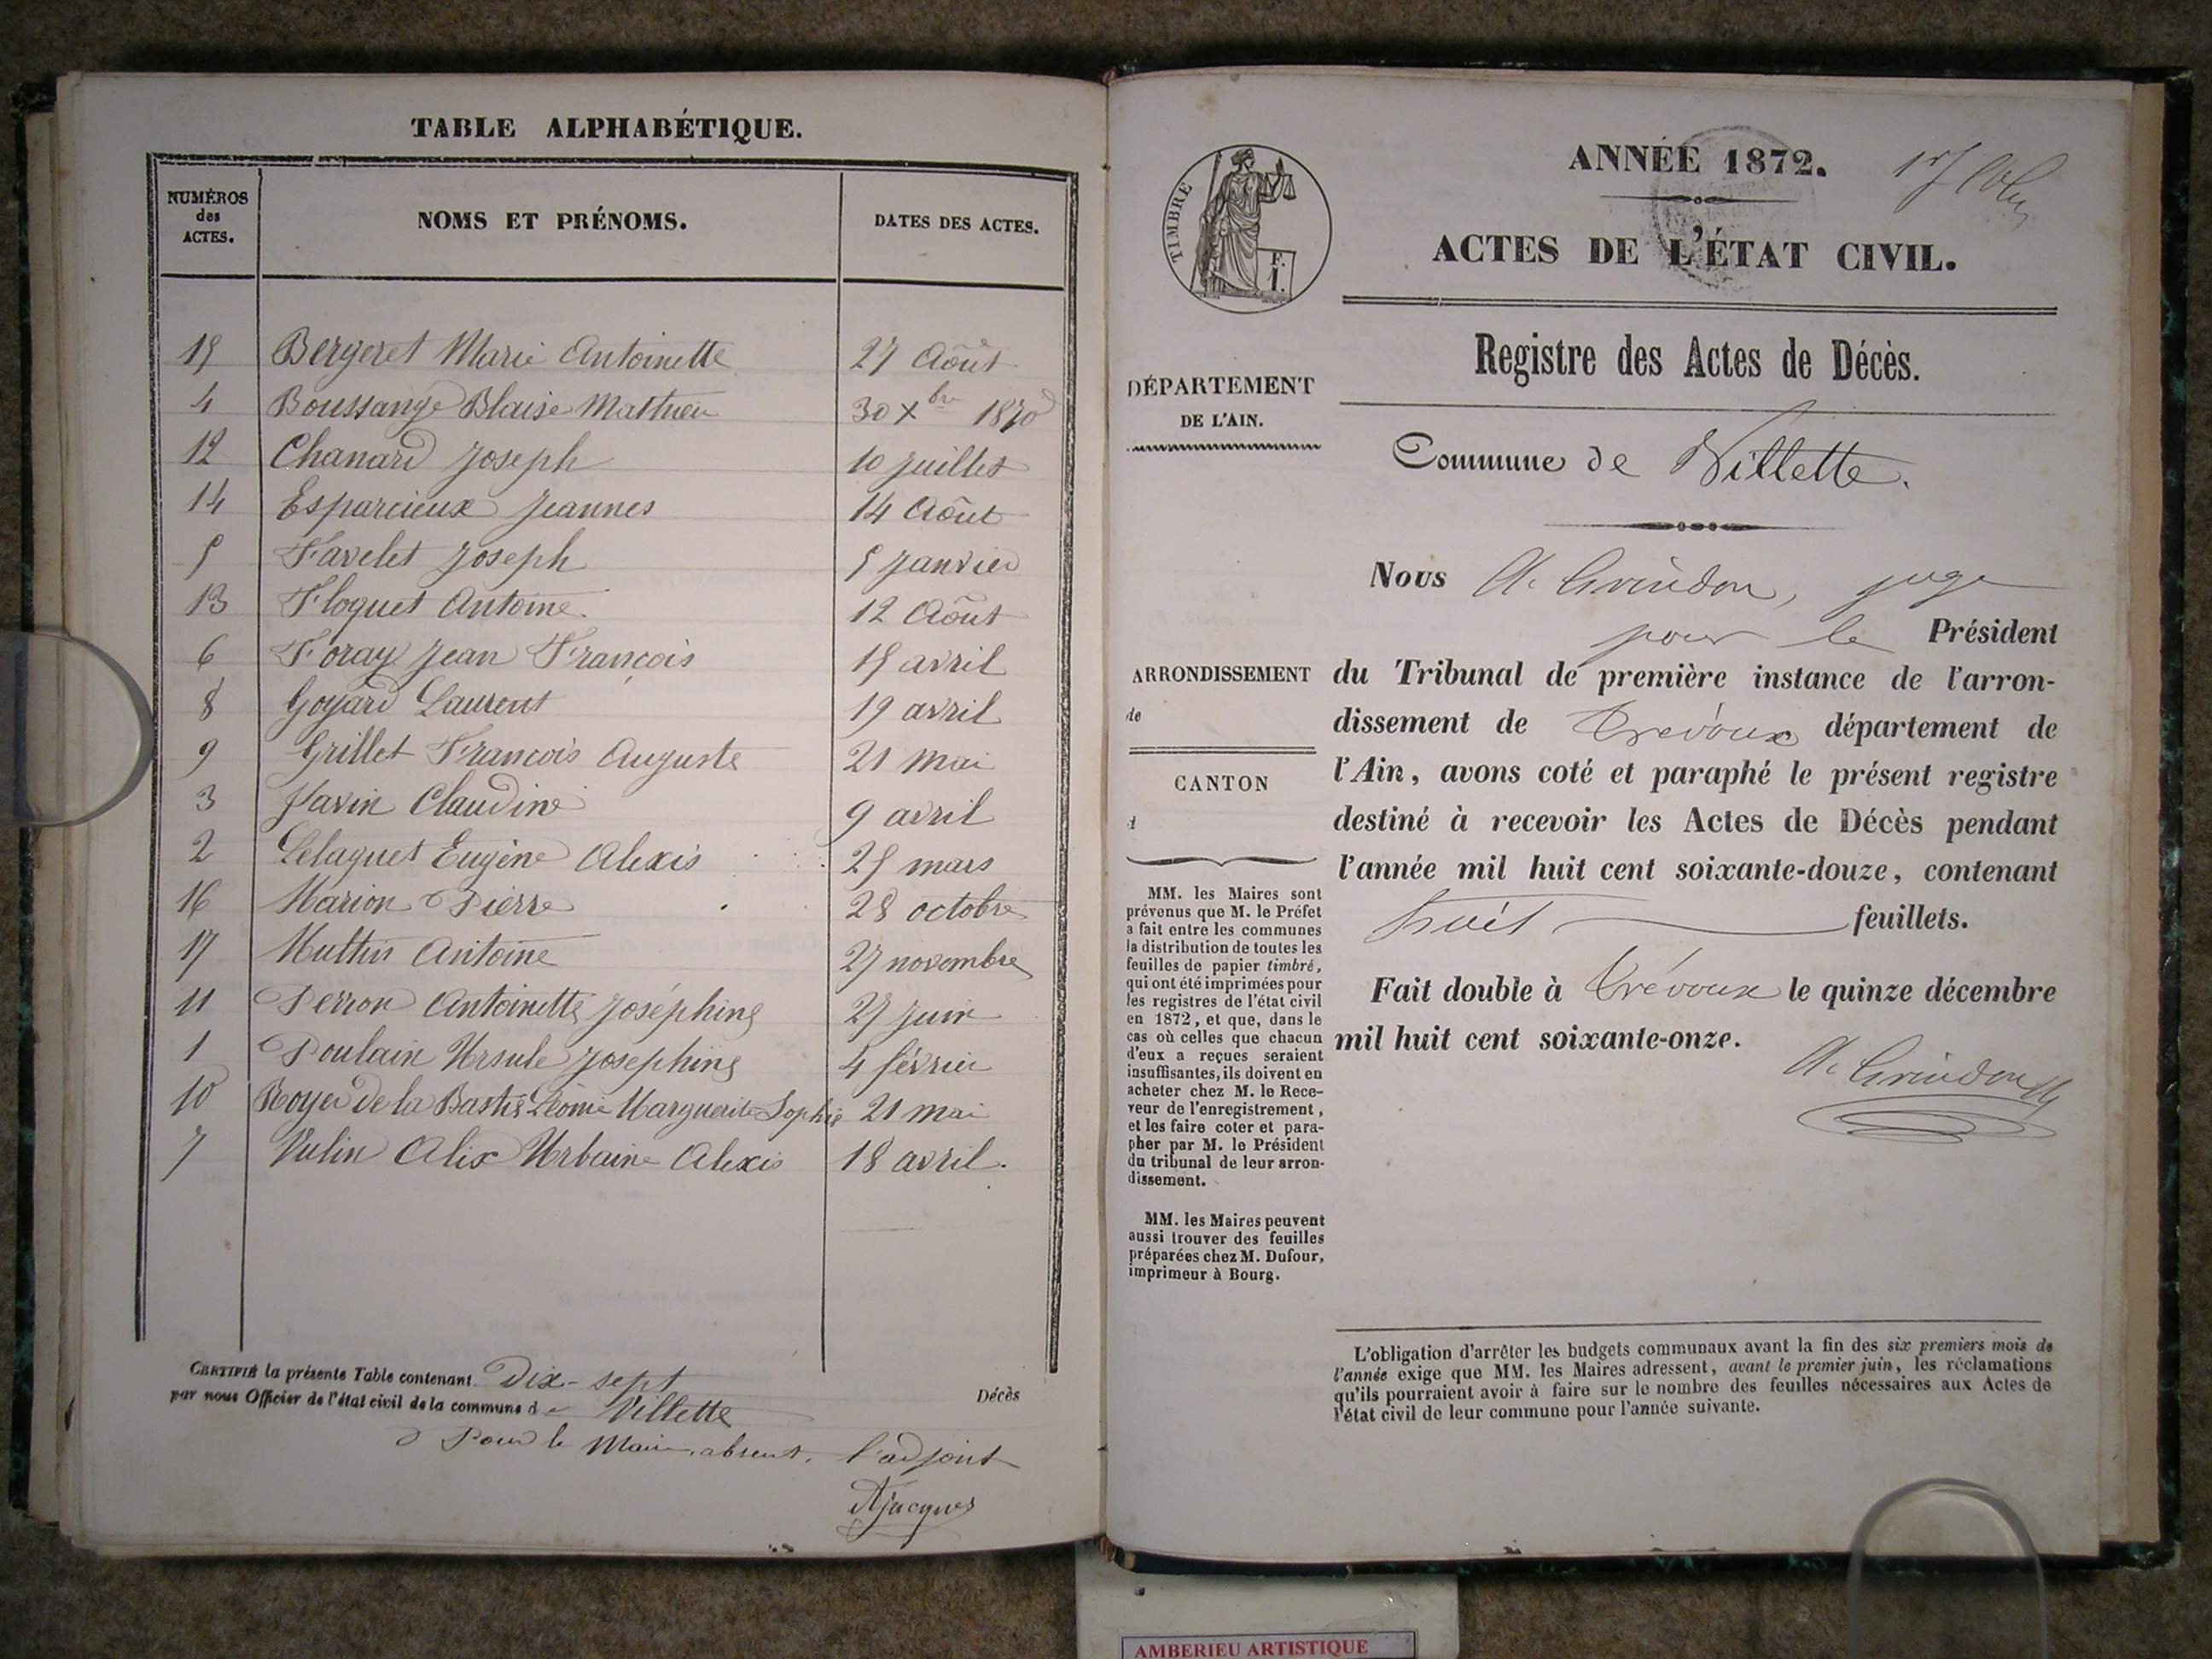 TABLE ALPHABÉTIQUE.
NUMÉROS des ACTES. NOMS ET PRÉNOMS. DATES DES ACTES.
15 Bergeret Marie Antoinette 27 Août
4 Boussange Blaise Mathieu 30 Xbre 1870
12 Chanard Joseph 10 Juillet
14 Esparcieux Jeannes 14 Août
5 Favelet Joseph 5 Janvier
13 Floquet Antoine 12 Août
6 Foray Jean François 15 avril
8 Goyard Laurent 19 avril
9 Grillet François Auguste 21 Mai
3 Javin Claudine 9 avril
2 Lelaquet Eugène Alexis 25 mars
16 Marion Pierre 28 octobre
17 Muthin Antoine 27 novembre
11 Perron Antoinette Joséphine 27 Juin
1 Poulain Ursule Josephine 4 février
10 Royer de la Bastie Léonie Marguerite Sophie 21 mai
7 Vulin Alix Urbaine Alexis 18 avril.
CERTIFIÉ la présente Table contenant Dix-sept Décès
par nous Officier de l'état civil de la commune de Villette
Pour le Maire absent, l'adjoint
Jacques
TIMBRE
F.
I.
ANNÉE 1872.
ACTES DE L'ÉTAT CIVIL.
Registre des Actes de Décès.
DÉPARTEMENT
DE L'AIN.
Commune de Villette.
Nous A. Grindon, juge
pour le Président
ARRONDISSEMENT
de
du Tribunal de première instance de l'arron-
dissement de Trévoux département de
l'Ain, avons coté et paraphé le présent registre
destiné à recevoir les Actes de Décès pendant
l'année mil huit cent soixante-douze, contenant
huit feuillets.
Fait double à Trévoux le quinze décembre
mil huit cent soixante-onze.
A. Grindon
CANTON
d
MM. les Maires sont
prévenus que M. le Préfet
a fait entre les communes
la distribution de toutes les
feuilles de papier timbré,
qui ont été imprimées pour
les registres de l'état civil
en 1872, et que, dans le
cas où celles que chacun
d'eux a reçues seraient
insuffisantes, ils doivent en
acheter chez M. le Rece-
veur de l'enregistrement,
et les faire coter et para-
pher par M. le Président
du tribunal de leur arron-
dissement.
MM. les Maires peuvent
aussi trouver des feuilles
préparées chez M. Dufour,
imprimeur à Bourg.
L'obligation d'arrêter les budgets communaux avant la fin des six premiers mois de
l'année exige que MM. les Maires adressent, avant le premier juin, les réclamations
qu'ils pourraient avoir à faire sur le nombre des feuilles nécessaires aux Actes de
l'état civil de leur commune pour l'année suivante.
AMBERIEU ARTISTIQUE